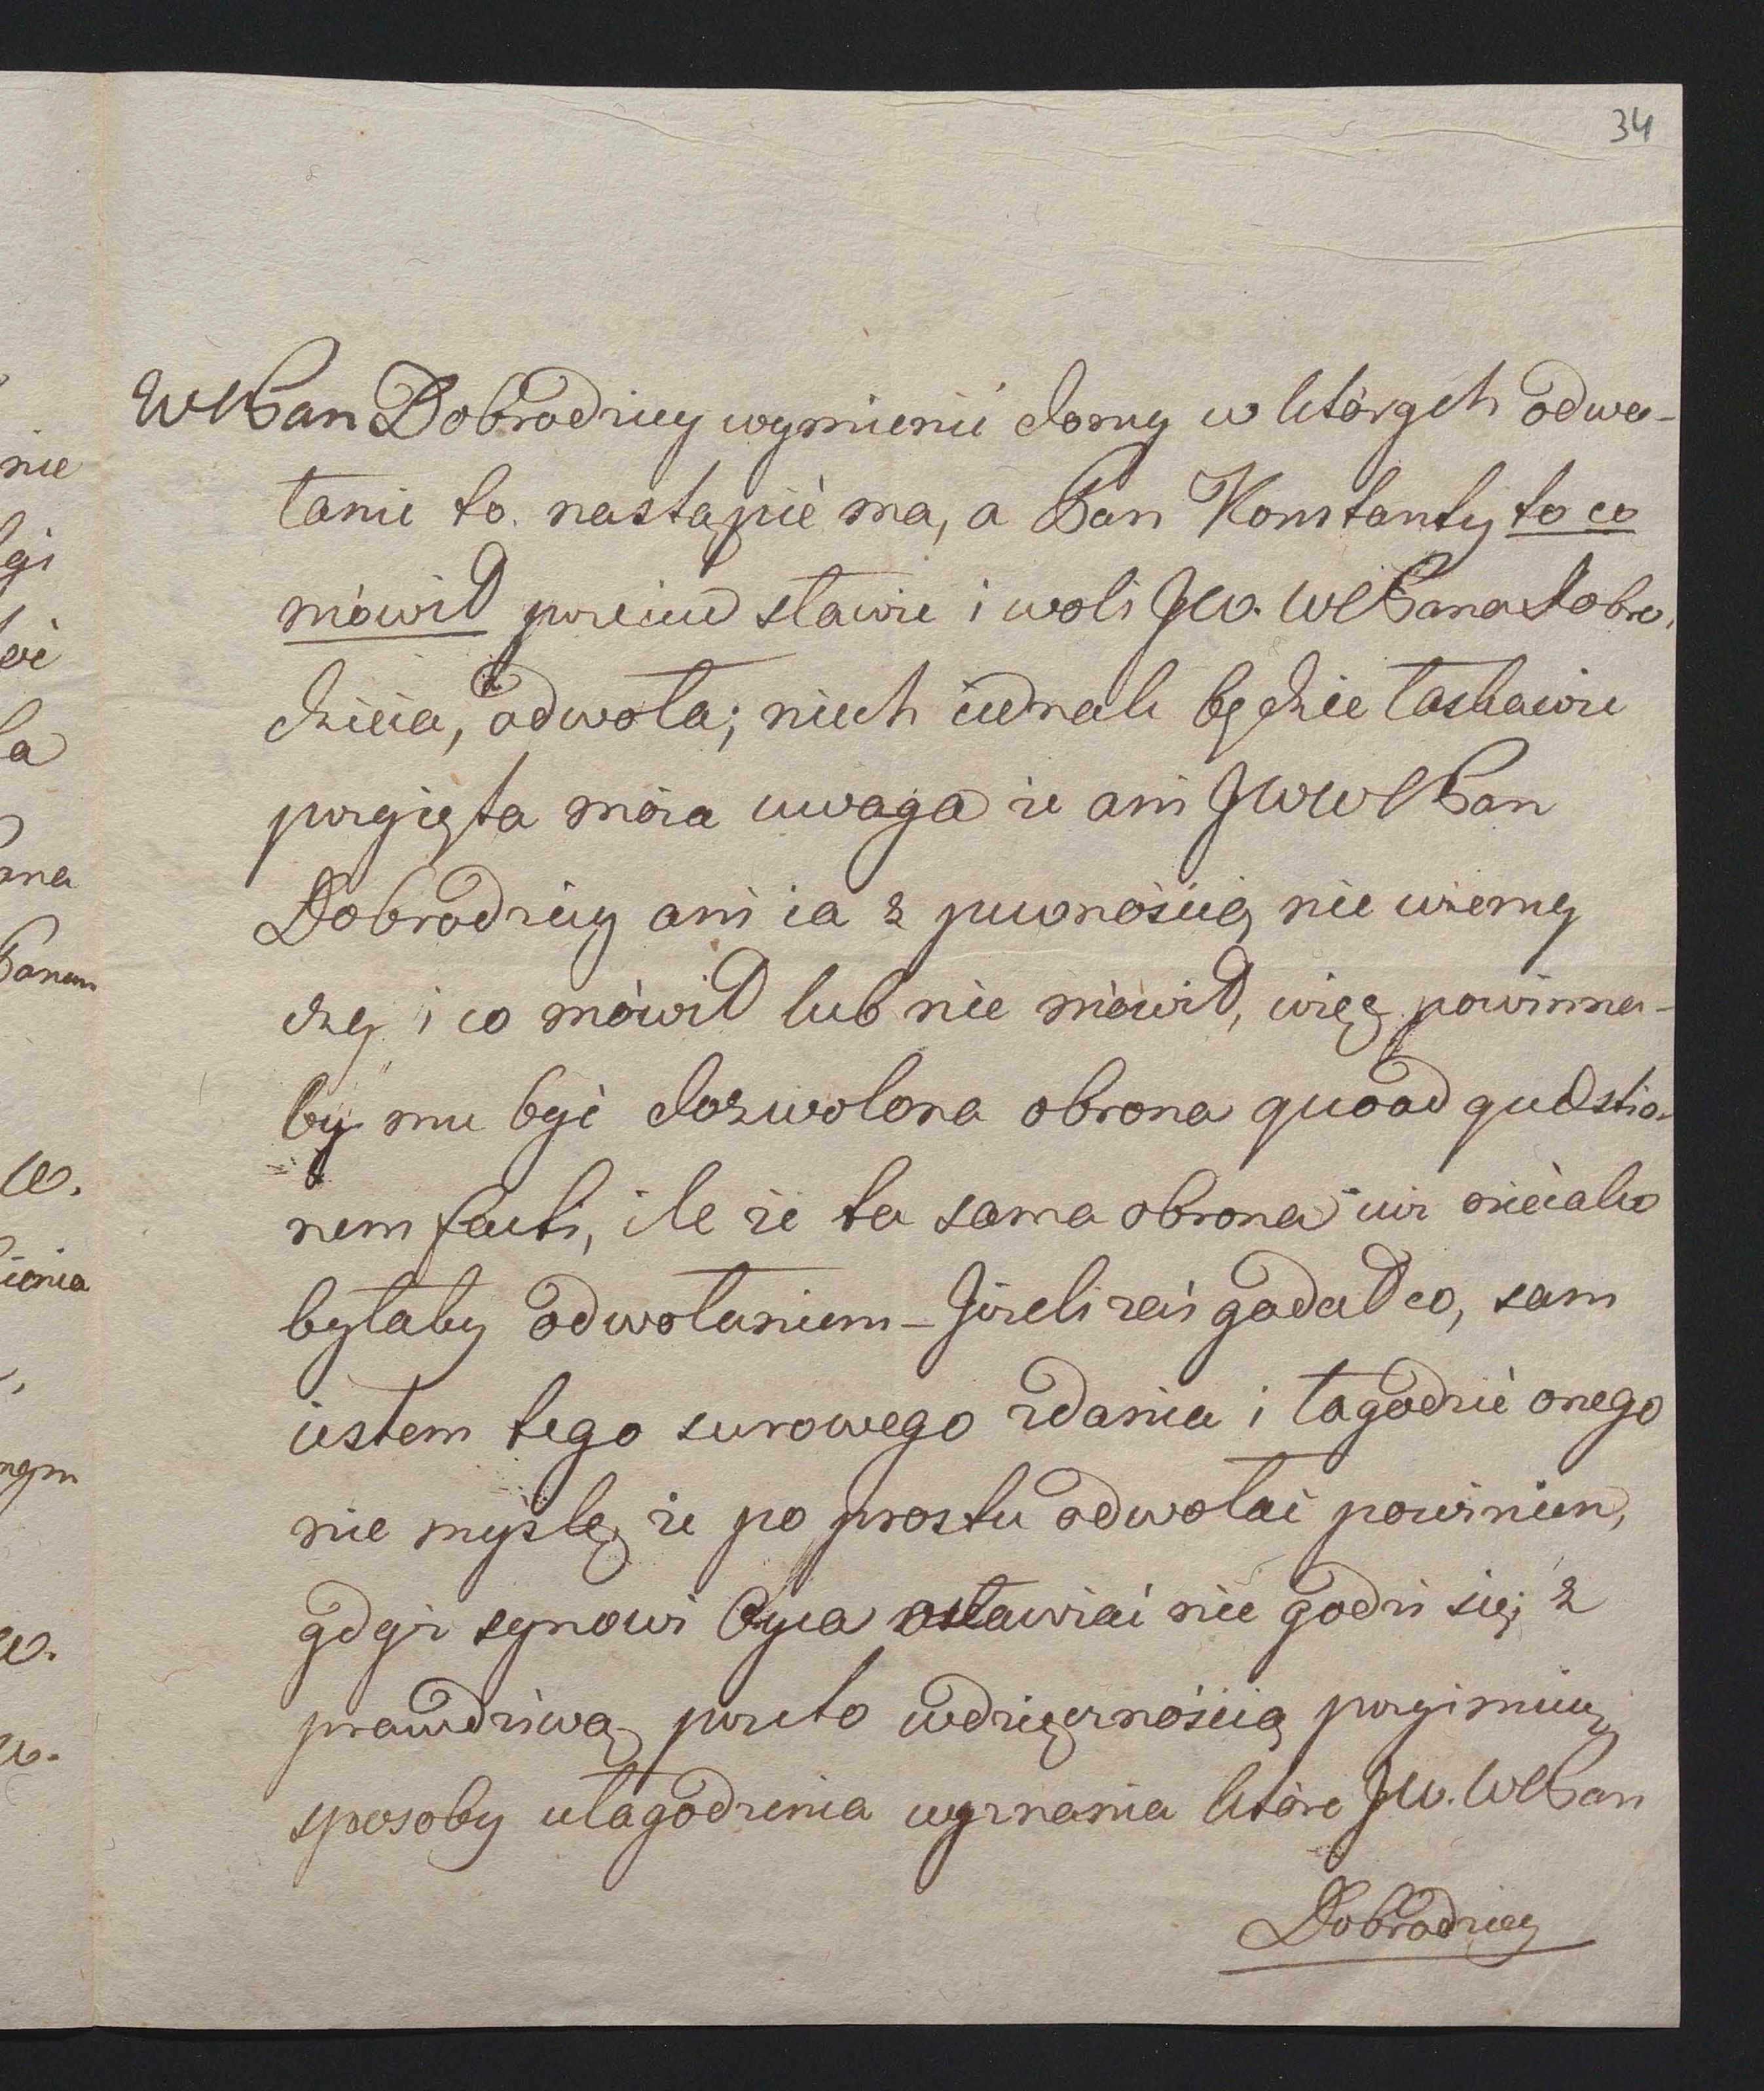 34
nie
WMPan Dobrodziey wymienić domy w których odwo-
łanie to nastąpić ma, a Pan Konstanty to co
mówił przeciw sławie i woli JW. WMPana Dobro-
dzieia, odwoła; niech iednak będzie łaskawie
przyięta moia uwaga że ani JWWMPan
Dobrodziey ani ia z pewnością nie wiemy
czy i co mówił lub nie mówił, więc powinna-
by mu być dozwolona obrona quoad quæstio-
nem facti, ile że ta sama obrona iuż nieiako
byłaby odwołaniem – Jeżeli zaś gadał co, sam
iestem tego surowego zdania i łagodzić onego
nie myślę że po prostu odwołać powinien,
gdyż synowi Oyca osławiać nie godzi się; z
prawdziwą przeto wdzięcznością przyimuię
sposoby ułagodzenia wyznania które JW. WMPan
Dobrodziey